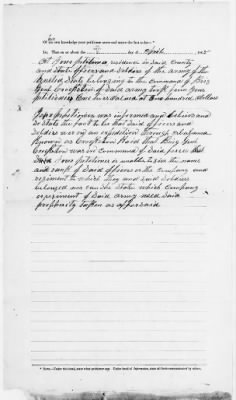 Of his own knowledge your petitioner states and avers the fact to be:*
15. That on or about the day of April 1865
At your petitioners residence in said County
and State officers and soldiers of the army of the
United States belonging to the command of Brig
Genl Croxton of said army took from your
petitioner One mule valued at One hundred dollars
Your petitioner was informed and believes and
so states the fact to be that said officers and
soldiers was on an expedition through Alabama
known as Croxton Raid that Brig Genl
Croxton was in command of said forces that
said your petitioner is unable to give the name
and rank of said officers or the company and
regiment to which they and said soldiers
belonged nor can he state which company
or regiment of said army used said
property taken as aforesaid
* NOTE.—Under this head, state what petitioner says. Under head of Information, state all facts communicated by others.